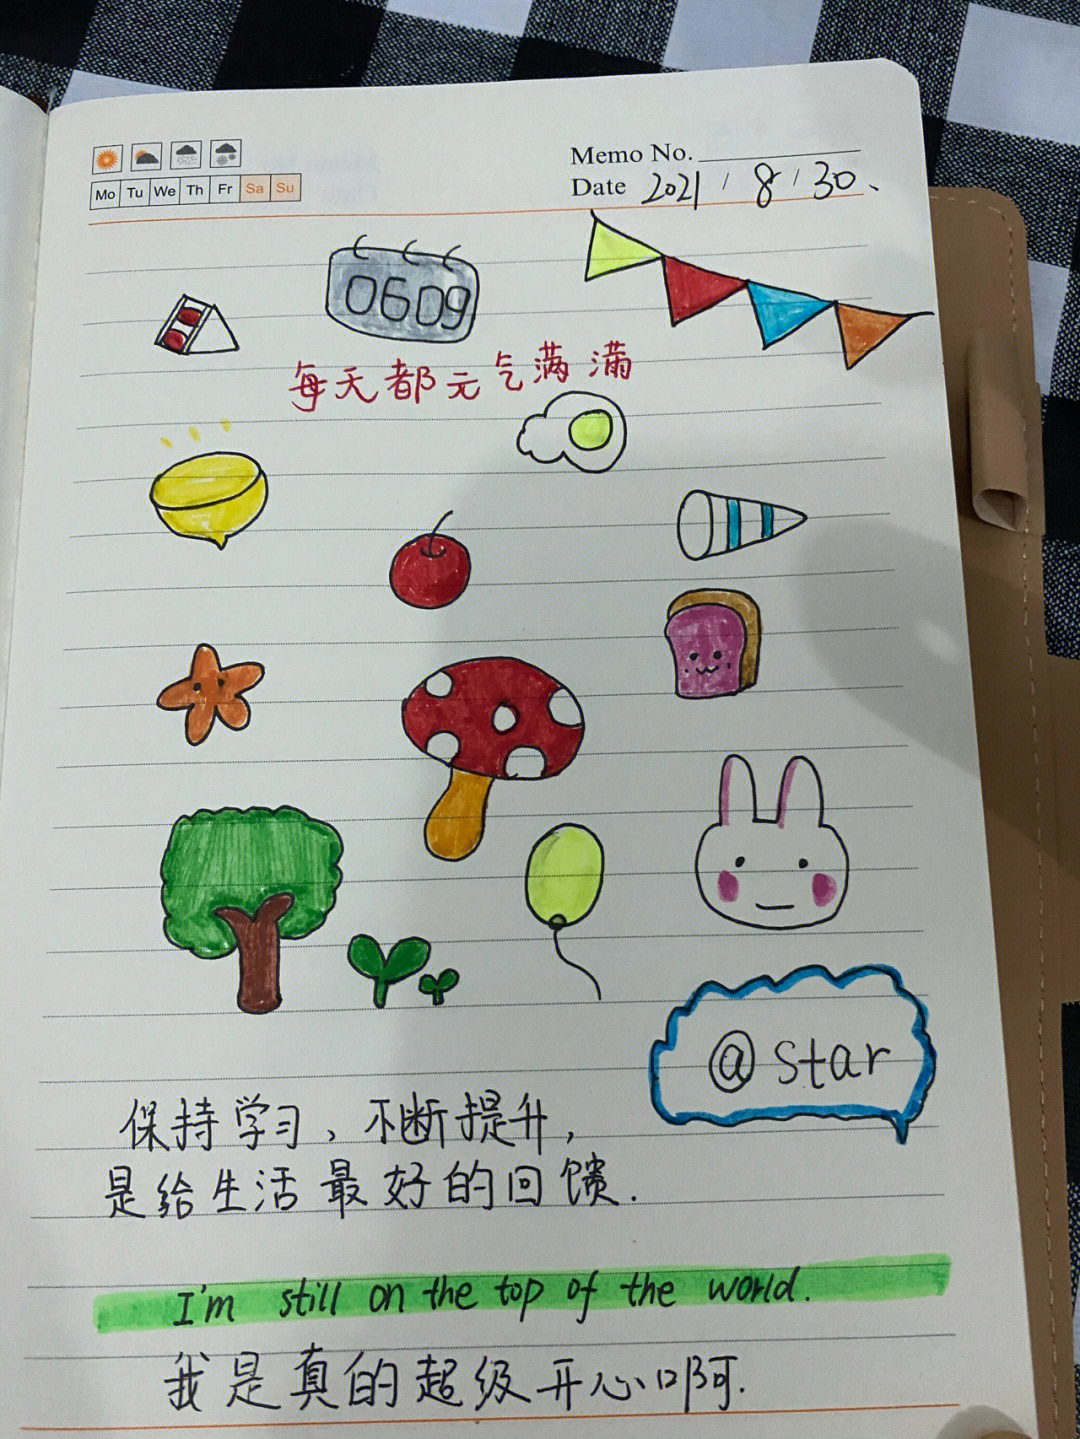 Memo No.
Mo Tu We Th Fr Sa Su
Date 2021 / 8 / 30、
0609
每天都元气满满
@star
保持学习、不断提升，
是给生活最好的回馈.
I'm still on the top of the world.
我是真的超级开心啊.